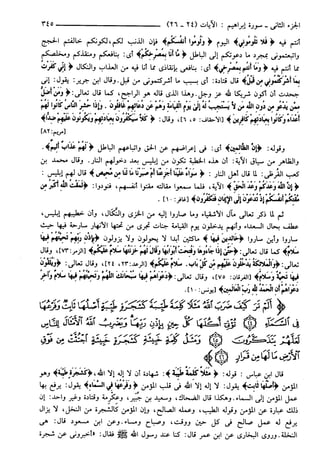 الجزء الثاني - سورة إبراهيم : الآيات (٢٤ - ٢٦) ٣٤٥
أنتم فيه ﴿ فلا تلوموني ﴾ اليوم ﴿ ولوموا أنفسكم ﴾ فإن الذنب لكم، لكونكم خالفتم الحجج
واتبعتموني بمجرد ما دعوتكم إلى الباطل ﴿ ما أنا بمصرخكم ﴾ أي: بنافعكم ومنقذكم ومخلصكم
مما أنتم فيه ﴿ وما أنتم بمصرخي ﴾ أي: بنافعي بإنقاذي مما أنا فيه من العذاب والنكال ﴿ إني كفرت
بما أشركتمون من قبل ﴾ قال قتادة: أي بسبب ما أشركتموني من قبل. وقال ابن جرير: يقول: إني
جحدت أن أكون شريكا لله عز وجل. وهذا الذي قاله هو الراجح، كما قال تعالى: ﴿ ومن أضل
ممن يدعو من دون الله من لا يستجيب له إلى يوم القيامة وهم عن دعائهم غافلون . وإذا حشر الناس كانوا لهم
أعداء وكانوا بعبادتهم كافرين ﴾ [الأحقاف: ٥، ٦]، وقال: ﴿ كلا سيكفرون بعبادتهم ويكونون عليهم ضدا ﴾
[مريم: ٨٢]
وقوله: ﴿ إن الظالمين ﴾ أي: في إعراضهم عن الحق واتباعهم الباطل ﴿ لهم عذاب أليم ﴾ .
والظاهر من سياق الآية: أن هذه الخطبة تكون من إبليس بعد دخولهم النار. وقال محمد بن
كعب القرظي: لما قال أهل النار : ﴿ سواء علينا أجزعنا أم صبرنا ما لنا من محيص ﴾ قال لهم إبليس :
﴿ إن الله وعدكم وعد الحق ﴾ الآية، فلما سمعوا مقالته مقتوا أنفسهم، فنودوا: ﴿ لمقت الله أكبر من
مقتكم أنفسكم إذ تدعون إلى الإيمان فتكفرون ﴾ [غافر: ١٠] .
ثم لما ذكر تعالى مآل الأشقياء وما صاروا إليه من الخزي والنكال، وأن خطيبهم إبليس،
عطف بحال السعداء وأنهم يدخلون يوم القيامة جنات تجري من تحتها الأنهار سارحة فيها حيث
ساروا وأين ساروا ﴿ خالدين فيها ﴾ ماكثين أبدا لا يحولون ولا يزولون ﴿ بإذن ربهم تحيتهم فيها
سلام ﴾ كما قال تعالى: ﴿ حتى إذا جاءوها وفتحت أبوابها وقال لهم خزنتها سلام عليكم ﴾ [الزمر: ٧٣]، وقال
تعالى: ﴿ والملائكة يدخلون عليهم من كل باب . سلام عليكم ﴾ [الرعد: ٢٣، ٢٤]، وقال تعالى: ﴿ ويلقون
فيها تحية وسلاما ﴾ [الفرقان: ٧٥]، وقال تعالى: ﴿ دعواهم فيها سبحانك اللهم وتحيتهم فيها سلام وآخر
دعواهم أن الحمد لله رب العالمين ﴾ [يونس: ١٠].
﴿ ألم تر كيف ضرب الله مثلا كلمة طيبة كشجرة طيبة أصلها ثابت وفرعها
في السماء ۝ تؤتي أكلها كل حين بإذن ربها ويضرب الله الأمثال للناس
لعلهم يتذكرون ۝ ومثل كلمة خبيثة كشجرة خبيثة اجتثت من فوق
الأرض ما لها من قرار ۝ ﴾
قال ابن عباس : قوله: ﴿ مثلا كلمة طيبة ﴾ : شهادة أن لا إله إلا الله، ﴿ كشجرة طيبة ﴾ وهو
المؤمن ﴿ أصلها ثابت ﴾ يقول: لا إله إلا الله في قلب المؤمن ﴿ وفرعها في السماء ﴾ يقول: يرفع بها
عمل المؤمن إلى السماء. وهكذا قال الضحاك، وسعيد بن جبير، وعكرمة وقتادة وغير واحد: إن
ذلك عبارة عن المؤمن وقوله الطيب، وعمله الصالح، وإن المؤمن كالشجرة من النخل، لا يزال
يرفع له عمل صالح في كل حين ووقت، وصباح ومساء. وعن ابن مسعود قال: هي
النخلة. وروى البخاري عن ابن عمر قال: كنا عند رسول الله ﷺ فقال: «أخبروني عن شجرة